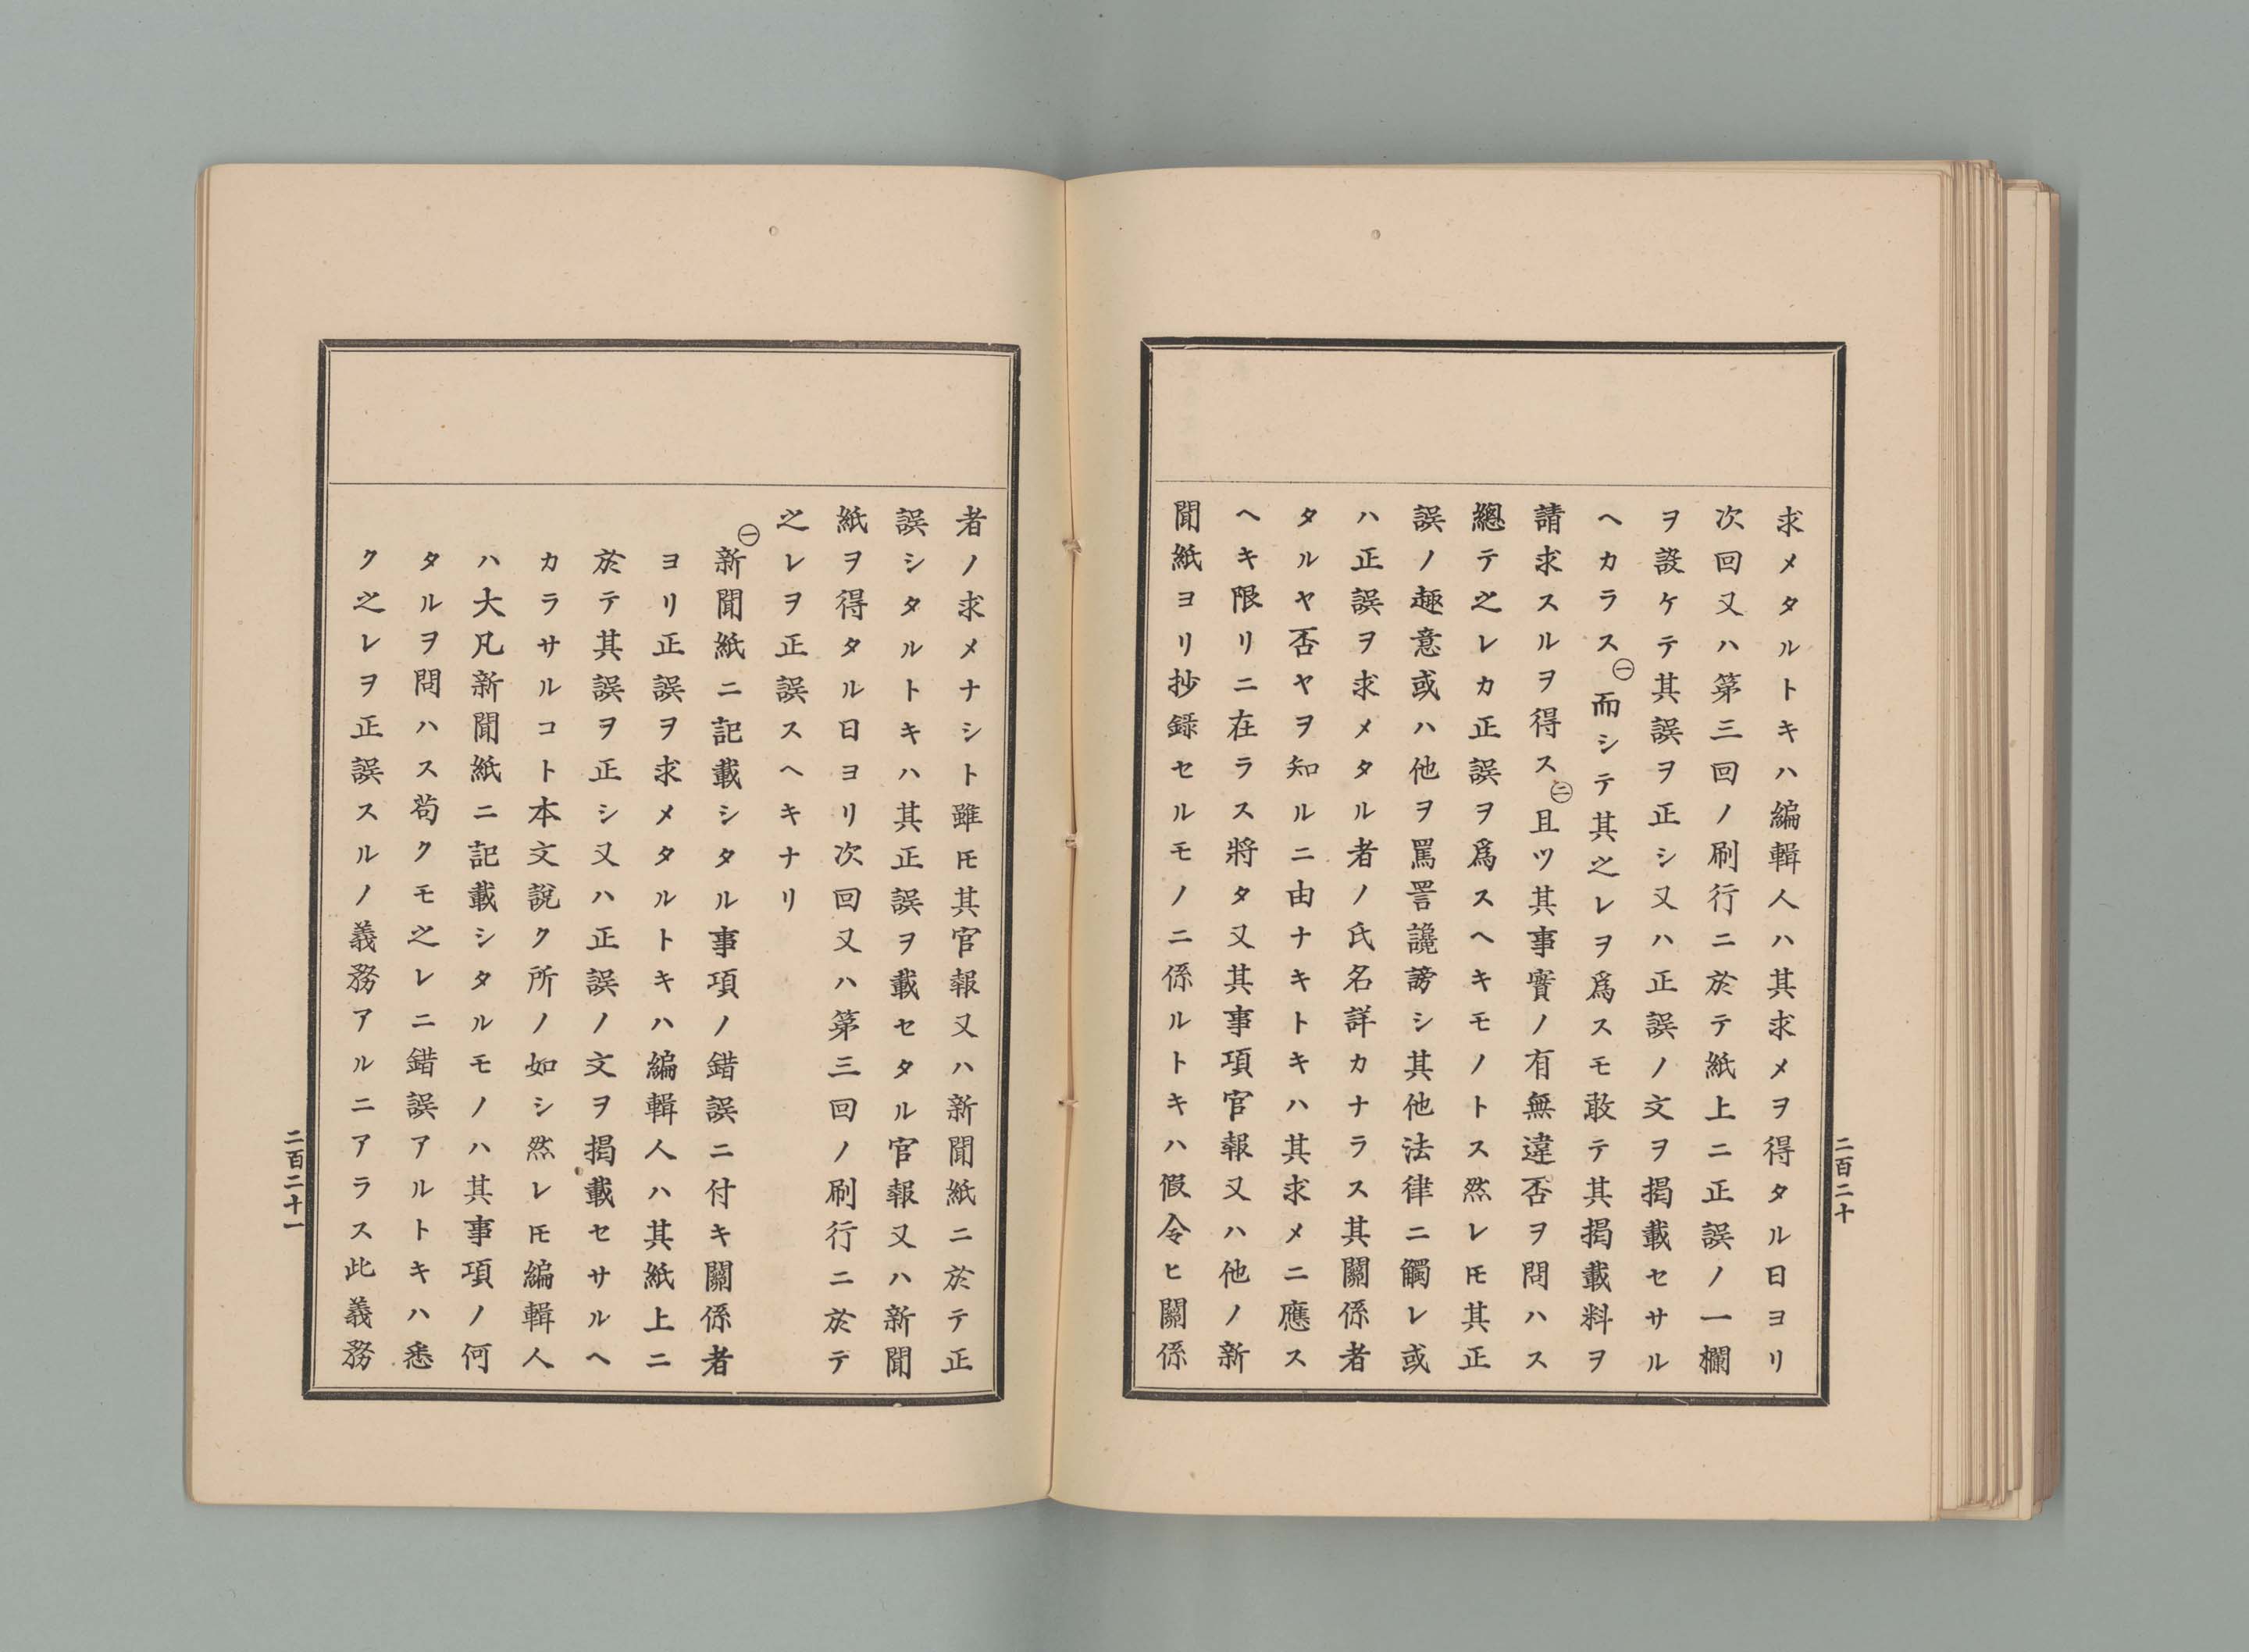 求メタルトキハ編輯人ハ其求メヲ得タル日ヨリ
次回又ハ第三回ノ刷行ニ於テ紙上ニ正誤ノ一欄
ヲ設ケテ其誤ヲ正シ又ハ正誤ノ文ヲ掲載セサル
ヘカラス㊀而シテ其之レヲ爲スモ敢テ其掲載料ヲ
請求スルヲ得ス㊁且ツ其事實ノ有無違否ヲ問ハス
總テ之レカ正誤ヲ爲スヘキモノトス然レ𪜈其正
誤ノ趣意或ハ他ヲ罵詈讒謗シ其他法律ニ觸レ或
ハ正誤ヲ求メタル者ノ氏名詳カナラス其關係者
タルヤ否ヤヲ知ルニ由ナキトキハ其求メニ應ス
ヘキ限リニ在ラス將タ又其事項官報又ハ他ノ新
聞紙ヨリ抄録セルモノニ係ルトキハ假令ヒ關係
二百二十
者ノ求メナシト雖𪜈其官報又ハ新聞紙ニ於テ正
誤シタルトキハ其正誤ヲ載セタル官報又ハ新聞
紙ヲ得タル日ヨリ次回又ハ第三回ノ刷行ニ於テ
之レヲ正誤スヘキナリ
㊀新聞紙ニ記載シタル事項ノ錯誤ニ付キ關係者
ヨリ正誤ヲ求メタルトキハ編輯人ハ其紙上ニ
於テ其誤ヲ正シ又ハ正誤ノ文ヲ掲載セサルヘ
カラサルコト本文説ク所ノ如シ然レ𪜈編輯人
ハ大凡新聞紙ニ記載シタルモノハ其事項ノ何
タルヲ問ハス苟クモ之レニ錯誤アルトキハ悉
ク之レヲ正誤スルノ義務アルニアラス此義務
二百二十一